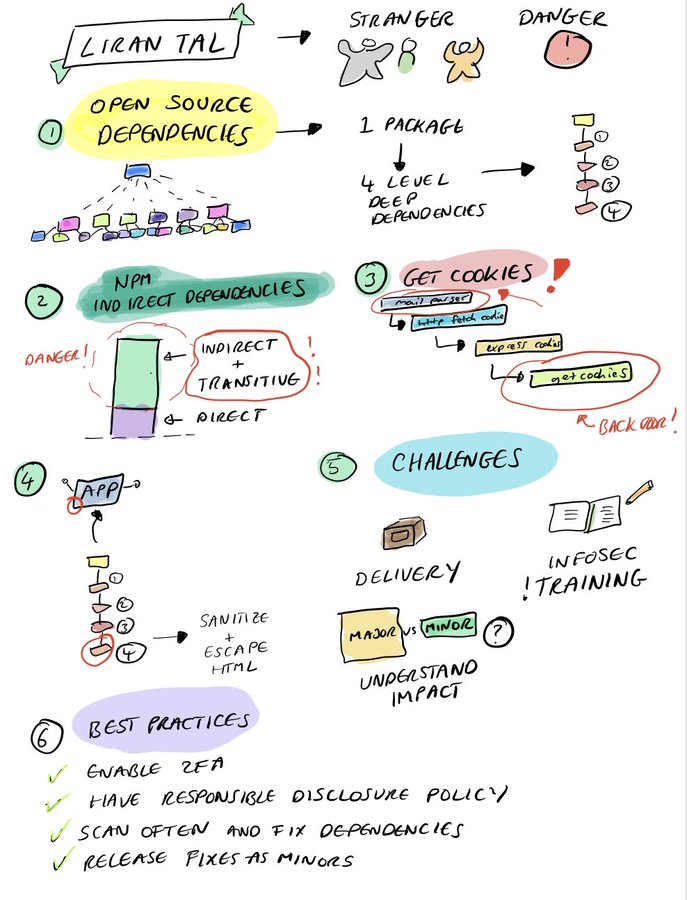 LIRAN TAL
STRANGER
DANGER
!
1
OPEN SOURCE
DEPENDENCIES
1 PACKAGE
4 LEVEL
DEEP
DEPENDENCIES
1
2
3
4
2
NPM
INDIRECT DEPENDENCIES
DANGER!
INDIRECT
+
TRANSITIVE
!
!
DIRECT
3
GET COOKIES !
mail parser
http fetch cookie
express cookies
get cookies
BACK DOOR!
4
APP
1
2
3
4
SANITIZE
+
ESCAPE
HTML
5
CHALLENGES
DELIVERY
INFOSEC
! TRAINING
MAJOR VS MINOR ?
UNDERSTAND
IMPACT
6
BEST PRACTICES
✓ ENABLE 2FA
✓ HAVE RESPONSIBLE DISCLOSURE POLICY
✓ SCAN OFTEN AND FIX DEPENDENCIES
✓ RELEASE FIXES AS MINORS